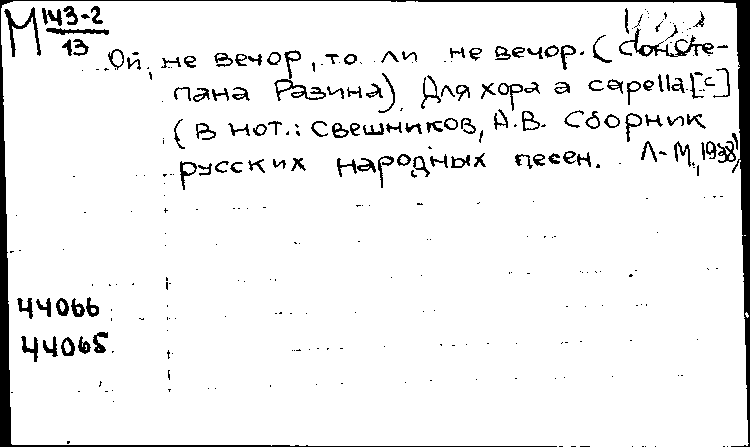 М 143-2
13
Ой, не вечор, то ли не вечор. (Сон Сте-
пана Разина). Для хора a capella. [c]
(В нот.: Свешников, А.В. Сборник
русских народных песен. Л-М., 1938)
44066
44065